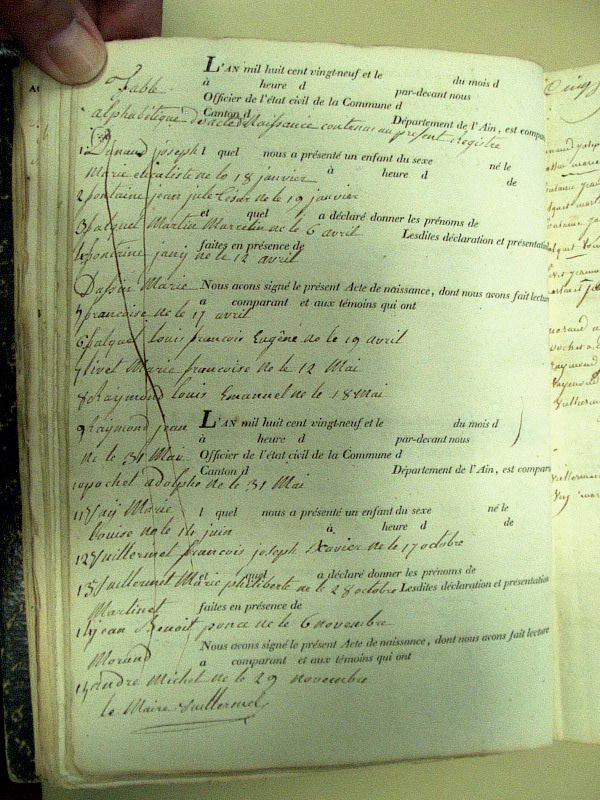 L'AN mil huit cent vingt-neuf et le du mois d
Table
à heure d par-devant nous
Officier de l'état civil de la Commune d
Canton d Département de l'Ain, est compar
alphabétique d'acte de Naissance contenus au present registre
1 Danaud joseph
1 quel nous a présenté un enfant du sexe né le
Marie evariste né le 18 janvier
à heure d de
2 fontaine jean jule César né le 19 janvier
et quel a déclaré donner les prénoms de
3 falquet Martin Marcelin né le 6 avril
Lesdites déclaration et présentation
faites en présence de
4 fontaine jany né le 12 avril
Marie
Nous avons signé le présent Acte de naissance, dont nous avons fait lecture
a comparant et aux témoins qui ont
5 françoise né le 17 avril
6 falquet louis françois Eugène né le 19 avril
7 livet Marie françoise né le 12 Mai
8 Raymond louis Emanuel né le 18 Mai
9 Raymond jean
L'AN mil huit cent vingt-neuf et le du mois d
à heure d par-devant nous
né le 31 Mai
Officier de l'état civil de la Commune d
Canton d Département de l'Ain, est compar
10 pochet adolphe né le 31 Mai
11 Marie
1 quel nous a présenté un enfant du sexe né le
louise né le 14 juin
à heure d de
12 Vuillermet françois joseph Xavier né le 17 octobre
et quel a déclaré donner les prénoms de
13 Vuillermet Marie philiberte né le 28 octobre
Lesdites déclaration et présentation
Martinet
faites en présence de
14 jean Benoit ponce né le 6 novembre
Morand
Nous avons signé le présent Acte de naissance, dont nous avons fait lecture
a comparant et aux témoins qui ont
15 andré Michel né le 29 novembre
le Maire Vuillermet